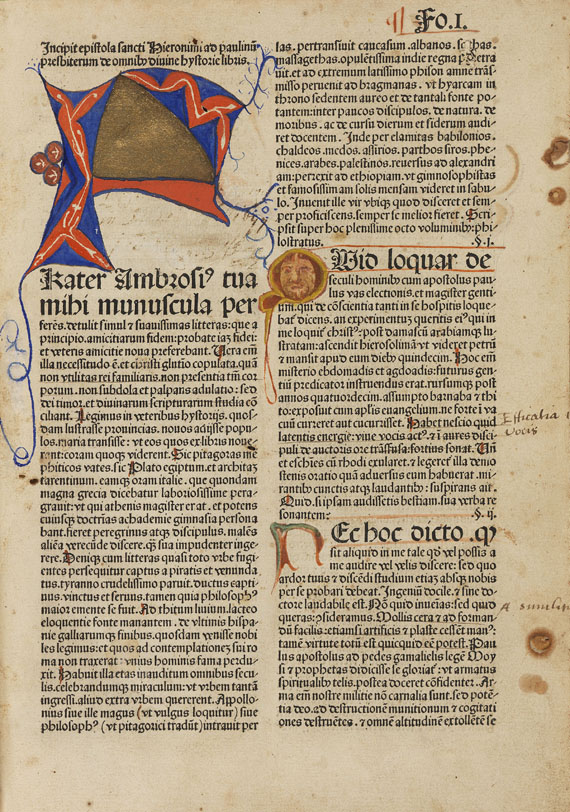 Fo.I.
Incipit epistola sancti Hieronimi ad paulinū
presbiterum de omnibꝰ diuine hystorie libris.
Frater Ambrosiꝰ tua
mihi munuscula per
ferēs. detulit simul ⁊ suauissimas litteras: que a
principio. amicitiarum fidem: probate iaꝫ fidei:
et veteris amicitie noua preferebant. Uera em̄
illa necessitudo ē. et christi glutīo copulata. quā
non vtilitas rei familiaris. non presentia tm̄ cor
porum. non subdola et palpans adulatio: sed
dei timor. et diuinarum scripturarum studia cō
ciliant. Legimus in veteribus hystorijs. quos-
dam lustrasse prouincias. nouos adijsse popu-
los. maria transisse: vt eos quos ex libris noue-
rant: coram quoqꝫ viderent. Sic pitagoras me
phiticos vates. sic Plato egiptum. et architaꝫ
tarentinum. eamqꝫ oram italie. que quondam
magna grecia dicebatur laboriosissime pera-
grauit: vt qui athenis magister erat. et potens
cuiusqꝫ doctrias achademie gimnasia persona
bant. fieret peregrinus atqꝫ discipulus. malēs
aliēa verecūde discere. qꝫ sua impudenter inge-
rere. Deniqꝫ cum litteras quasi toto vrbe fugi
entes persequitur captus a piratis et venunda
tus. tyranno crudelissimo paruit. ductus capti
nus. vinctus et seruus. tamen quia philosophꝰ
maior emente se fuit. Ad thitum liuium. lacteo
eloquentie fonte manantem. de vltimis hispa-
nie galliarumqꝫ finibus. quosdam venisse nobi
les legimus: et quos ad contemplationeꝫ sui ro
ma non traxerat: vnius hominis fama perdu-
xit. Habuit illa etas inauditum omnibus secu-
lis. celebrandumqꝫ miraculum: vt vrbem tantā
ingressi. aliud extra vrbem quererent. Appollo-
nius siue ille magus (vt vulgus loquitur) siue
philosophꝰ (vt pitagorici tradūt) intrauit per
las. pertransiuit caucasum. albanos. scithas.
massagethas. opulētissima indie regna penetra
uit. et ad extremum latissimo phison amne trās-
misso peruenit ad bragmanas. vt hyarcam in
throno sedentem aureo et de tantali fonte po-
tantem: inter paucos discipulos. de natura. de
moribus. ac de cursū dierum et siderum audi-
ret docentem. Inde per elamitas babilonios.
chaldeos. medos. assirios. parthos siros. phe-
nices. arabes. palestinos. reuersus ad alexandri
am: perrexit ad ethiopiam. vt gimnosophistas
et famosissimam solis mensam videret in sabu
lo. Inuenit ille vir vbiqꝫ quod disceret et sem-
per proficiscens. semper se melior fieret. Scri-
psit super hoc plenissime octo voluminibꝰ: phi
lostratus. .§. I.
Quid loquar de
seculi hominibꝰ cum apostolus pau-
lus vas electionis. et magister genti-
um. qui de cōscientia tanti in se hospitis loque-
bat᷑ dicens. an experimentuꝫ queritis eiꝰ qui in
me loquit᷑ christꝰ: post damascū arabiamqꝫ lu-
stratam: ascendit hierosolimā vt videret petrū
⁊ mansit apud eum diebꝰ quindecim. Hoc em̄
misterio ebdomadis et agdoadis: futurus gen-
tiū predicator instruendus erat. rursumqꝫ post
annos quatuordecim. assumpto barnaba ⁊ thi
to: exposuit cum aplis euangelium. ne forte ī va
cuū curreret aut cucurisset. Habet nescio quid
latentis energie: viue vocis actꝰ. ⁊ ī aures disci
puli de auctoris ore trāsfusa: fortius sonat. Un̄
et eschies cū rhodi exularet. ⁊ legeret᷑ illa demo
stenis oratio quā aduersus eum habuerat. mi-
rantibꝰ cunctis atqꝫ laudantibꝰ: suspirans ait.
Quid. si ipsam audissetis bestiam. sua verba re
sonantem: .§. ij.
Nec hoc dicto. qꝫ
sit aliquid in me tale qꝫ vel possis a
me audire vel velis discere: sed quo
ardor tuus ⁊ discēdi studium etiaꝫ absqꝫ nobis
per se probari debeat. Ingeniū docile. ⁊ sine do-
ctore laudabile est. Nō quid inueias: sed quid
queras: ꝯsideramus. Mollis cera ⁊ ad forman-
dū facilis: etiamsi artificis ⁊ plaste cesset᷑ manꝰ:
tamē virtute totū est quicquid eē potest. Pau
lus apostolus ad pedes gamalielis legē Moy
si ⁊ prophetas didicisse se gloriat᷑: vt armatus
spiritualibꝰ telis. postea doceret cōfidenter. Ar
ma em̄ nostre militie nō carnalia sunt. sed potē-
tia deo. ad destructionē munitionum ⁊ cogitati
ones destruētes. ⁊ omnē altitudinē extollētē se
Efficatia
vocis
A simili